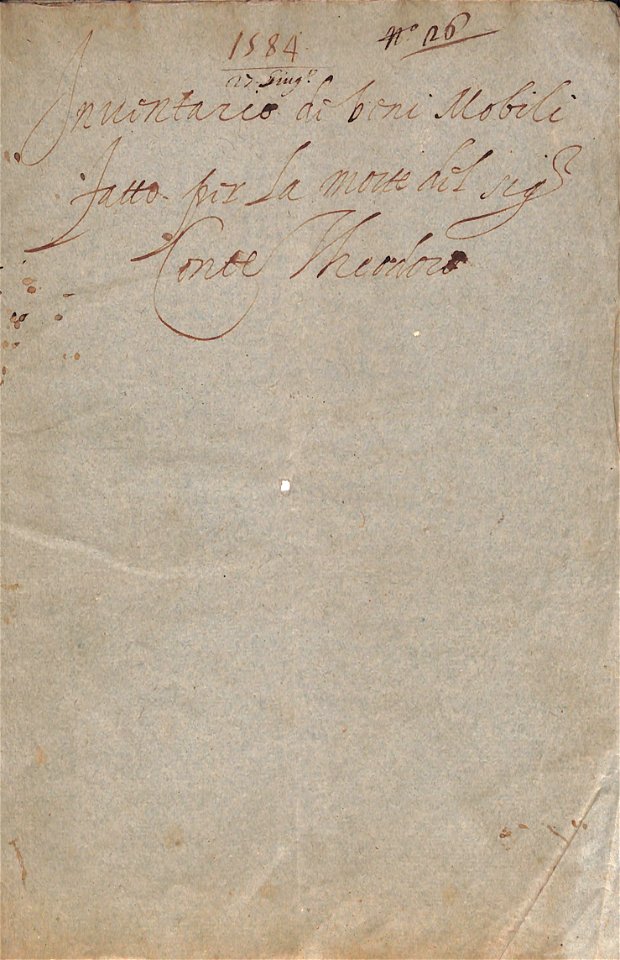 1584 n.º 26
27. Giug.º
Inventario di beni Mobili
fatto per La morte del sig.r
Conte Theodoro